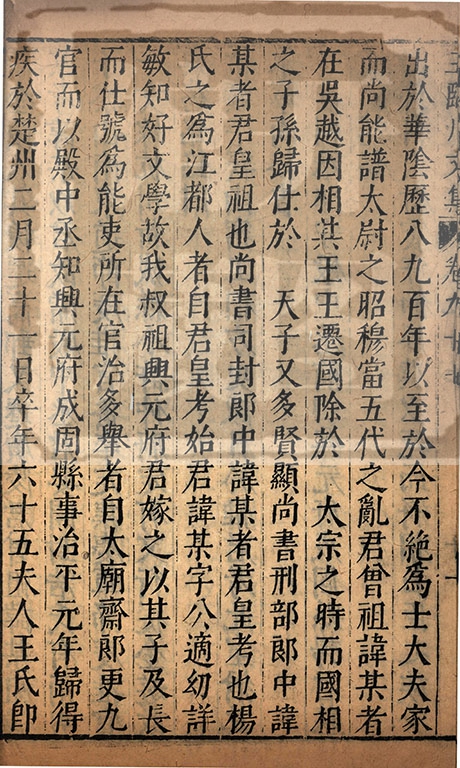 王臨川文集 卷九十七
出於華陰歷八九百年以至於今不絶為士大夫家
而尚能譜太尉之昭穆當五代之亂君曾祖諱某者
在吳越因相其王王遷國除於 太宗之時而國相
之子孫歸仕於 天子又多賢顯尚書刑部郎中諱
某者君皇祖也尚書司封郎中諱某者君皇考也楊
氏之為江都人者自君皇考始君諱某字公適幼詳
敏知好文學故我叔祖興元府君嫁之以其子及長
而仕號為能吏所在官治多舉者自太廟齋郎更九
官而以殿中丞知興元府成固縣事治平元年歸得
疾於楚州二月二十一日卒年六十五夫人王氏卽